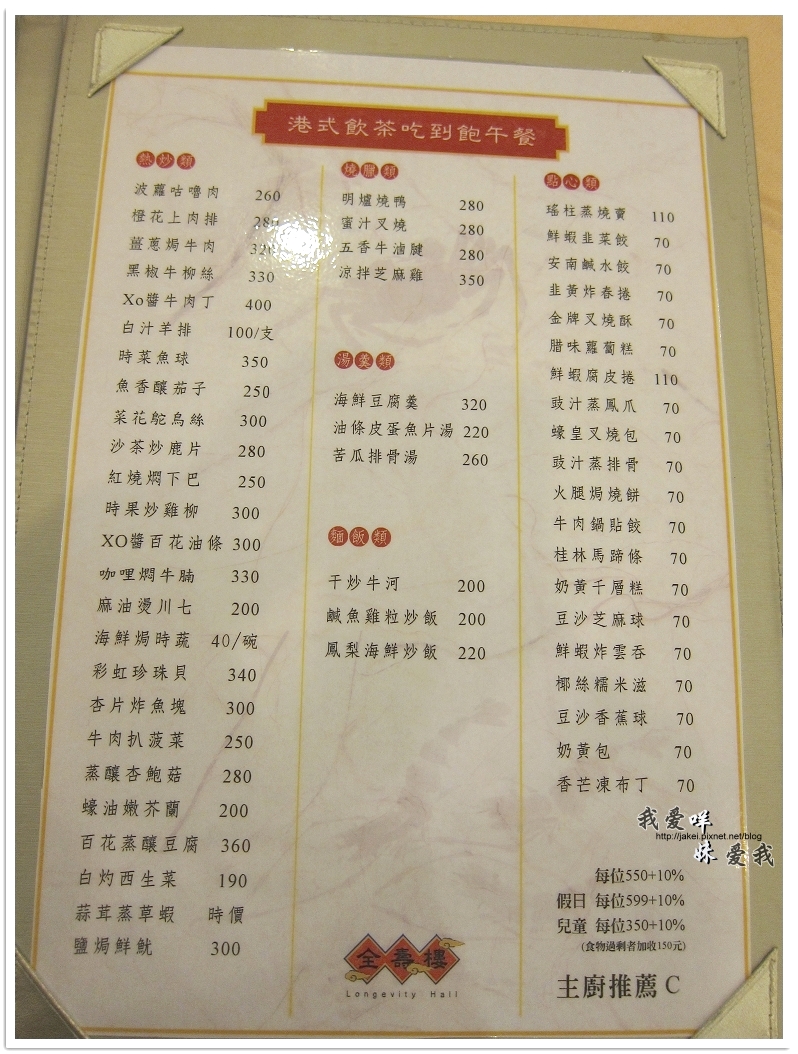 港式飲茶吃到飽午餐
熱炒類
波蘿咕嚕肉 260
橙花上肉排 280
薑蔥焗牛肉 320
黑椒牛柳絲 330
Xo醬牛肉丁 400
白汁羊排 100/支
時菜魚球 350
魚香釀茄子 250
菜花鴕鳥絲 300
沙茶炒鹿片 280
紅燒燜下巴 250
時果炒雞柳 300
XO醬百花油條 300
咖哩燜牛腩 330
麻油燙川七 200
海鮮焗時蔬 40/碗
彩虹珍珠貝 340
杏片炸魚塊 300
牛肉扒菠菜 250
蒸釀杏鮑菇 280
蠔油嫩芥蘭 200
百花蒸釀豆腐 360
白灼西生菜 190
蒜茸蒸草蝦 時價
鹽焗鮮魷 300
燒臘類
明爐燒鴨 280
蜜汁叉燒 280
五香牛滷腱 280
涼拌芝麻雞 350
湯羹類
海鮮豆腐羹 320
油條皮蛋魚片湯 220
苦瓜排骨湯 260
麵飯類
干炒牛河 200
鹹魚雞粒炒飯 200
鳳梨海鮮炒飯 220
全壽樓
Longevity Hall
點心類
瑤柱蒸燒賣 110
鮮蝦韭菜餃 70
安南鹹水餃 70
韭黃炸春捲 70
金牌叉燒酥 70
腊味蘿蔔糕 70
鮮蝦腐皮捲 110
豉汁蒸鳳爪 70
蠔皇叉燒包 70
豉汁蒸排骨 70
火腿焗燒餅 70
牛肉鍋貼餃 70
桂林馬蹄條 70
奶黃千層糕 70
豆沙芝麻球 70
鮮蝦炸雲吞 70
椰絲糯米滋 70
豆沙香蕉球 70
奶黃包 70
香芒凍布丁 70
我愛咩
http://jakei.pixnet.net/blog
妹愛我
每位550+10%
假日 每位599+10%
兒童 每位350+10%
(食物過剩者加收150元)
主廚推薦 C